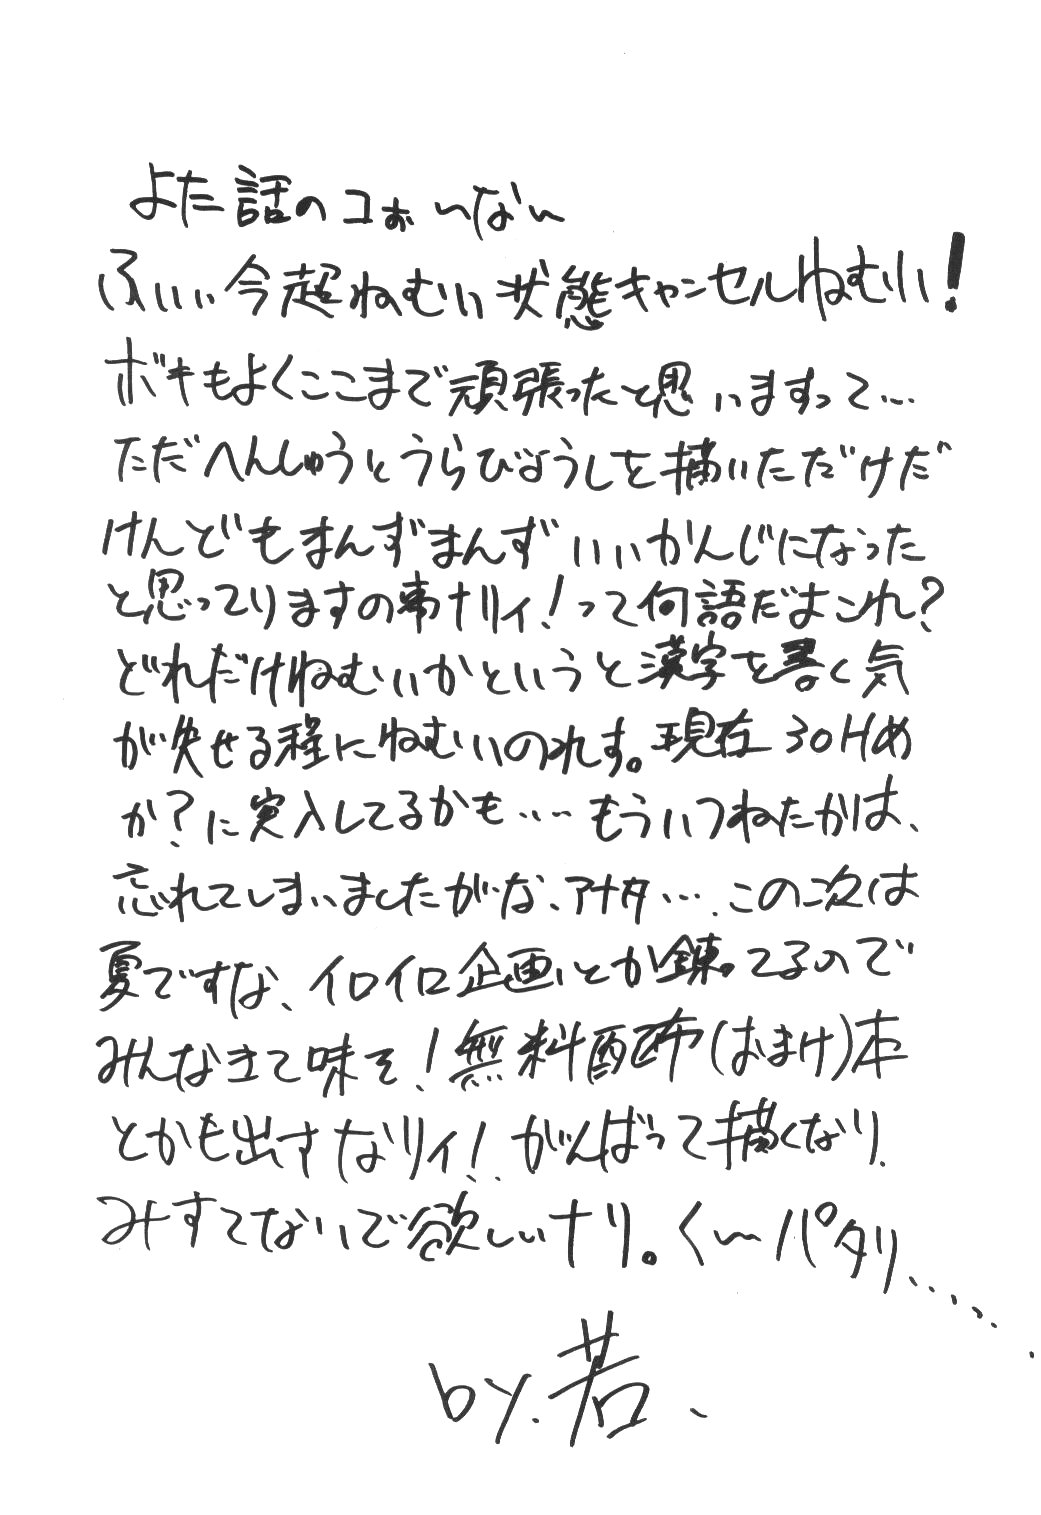 よた話のコぉ〜なぃ〜
ふぃぃ今超ねむい状態キャンセルねむい!
ボキもよくここまで頑張ったと思いますって…
ただへんしゅうとうらびょうしを描いただけだ
けんどもまんずまんずいいかんじになった
と思ってりますの事ナリィ!って何語だよこれ?
どれだけねむいかというと漢字を書く気
が失せる程にねむいのれす。現在30Hめ
か?に突入してるかも…もういつねたかは、
忘れてしまいましたがな、アナタ…。この次は
夏ですな、イロイロ企画とか錬ってるので
みんなきて味そ!無料配布(おまけ)本
とかも出すなりィ!がんばって描くなり.
みすてないで欲しいナリ。く〜パタリ......
by.若.